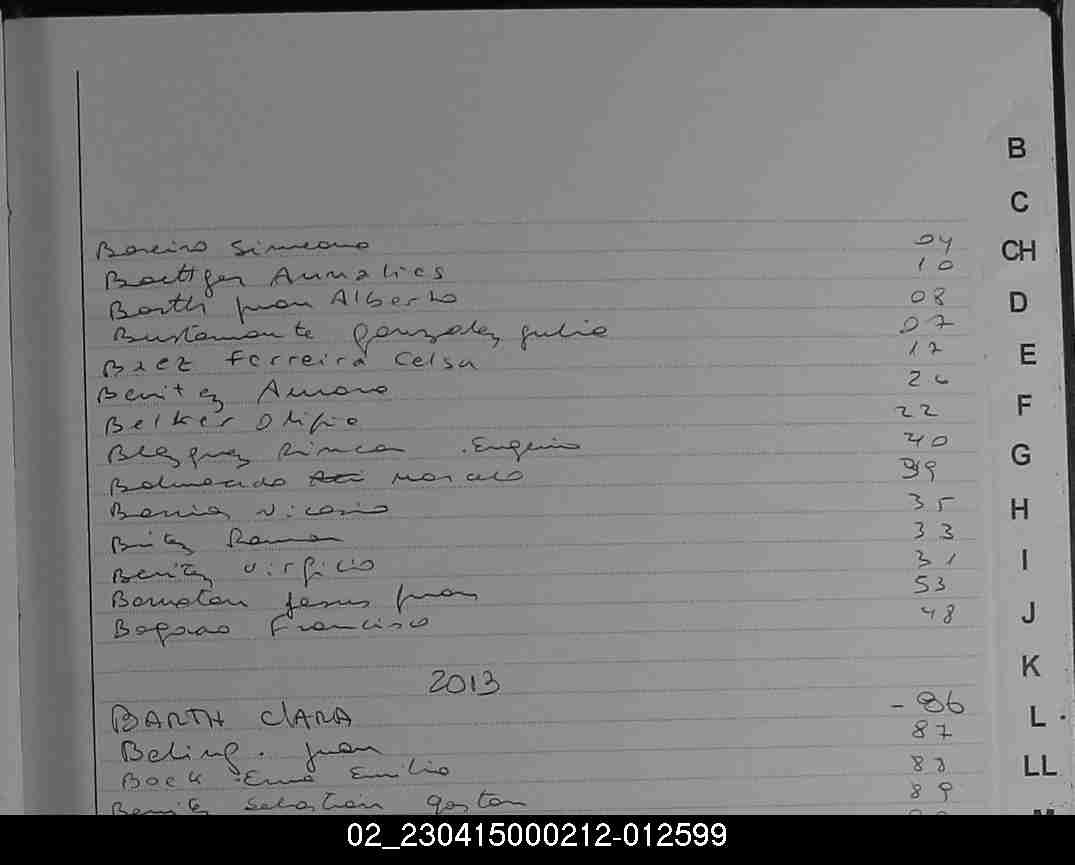 B
C
CH
D
E
F
G
H
I
J
K
L
LL
Boreiro Simeono 04
Boettger Annalies 10
Barth Juan Alberto 08
Bustamante Gonzalez Julio 07
Baez Ferreira Celsa 17
Benitez 26
Belker Olipio 22
Blazquez Rincon Eugenio 40
Marcelo 39
35
Britez Ramon 33
Benitez Virgicio 31
Jesus Juan 53
Bogado Francisco 48
2013
BARTH ClARA - 86
Beling. Juan 87
Bock Erno Emilio 88
Benitez Sebastian Gaston 89
02_230415000212-012599